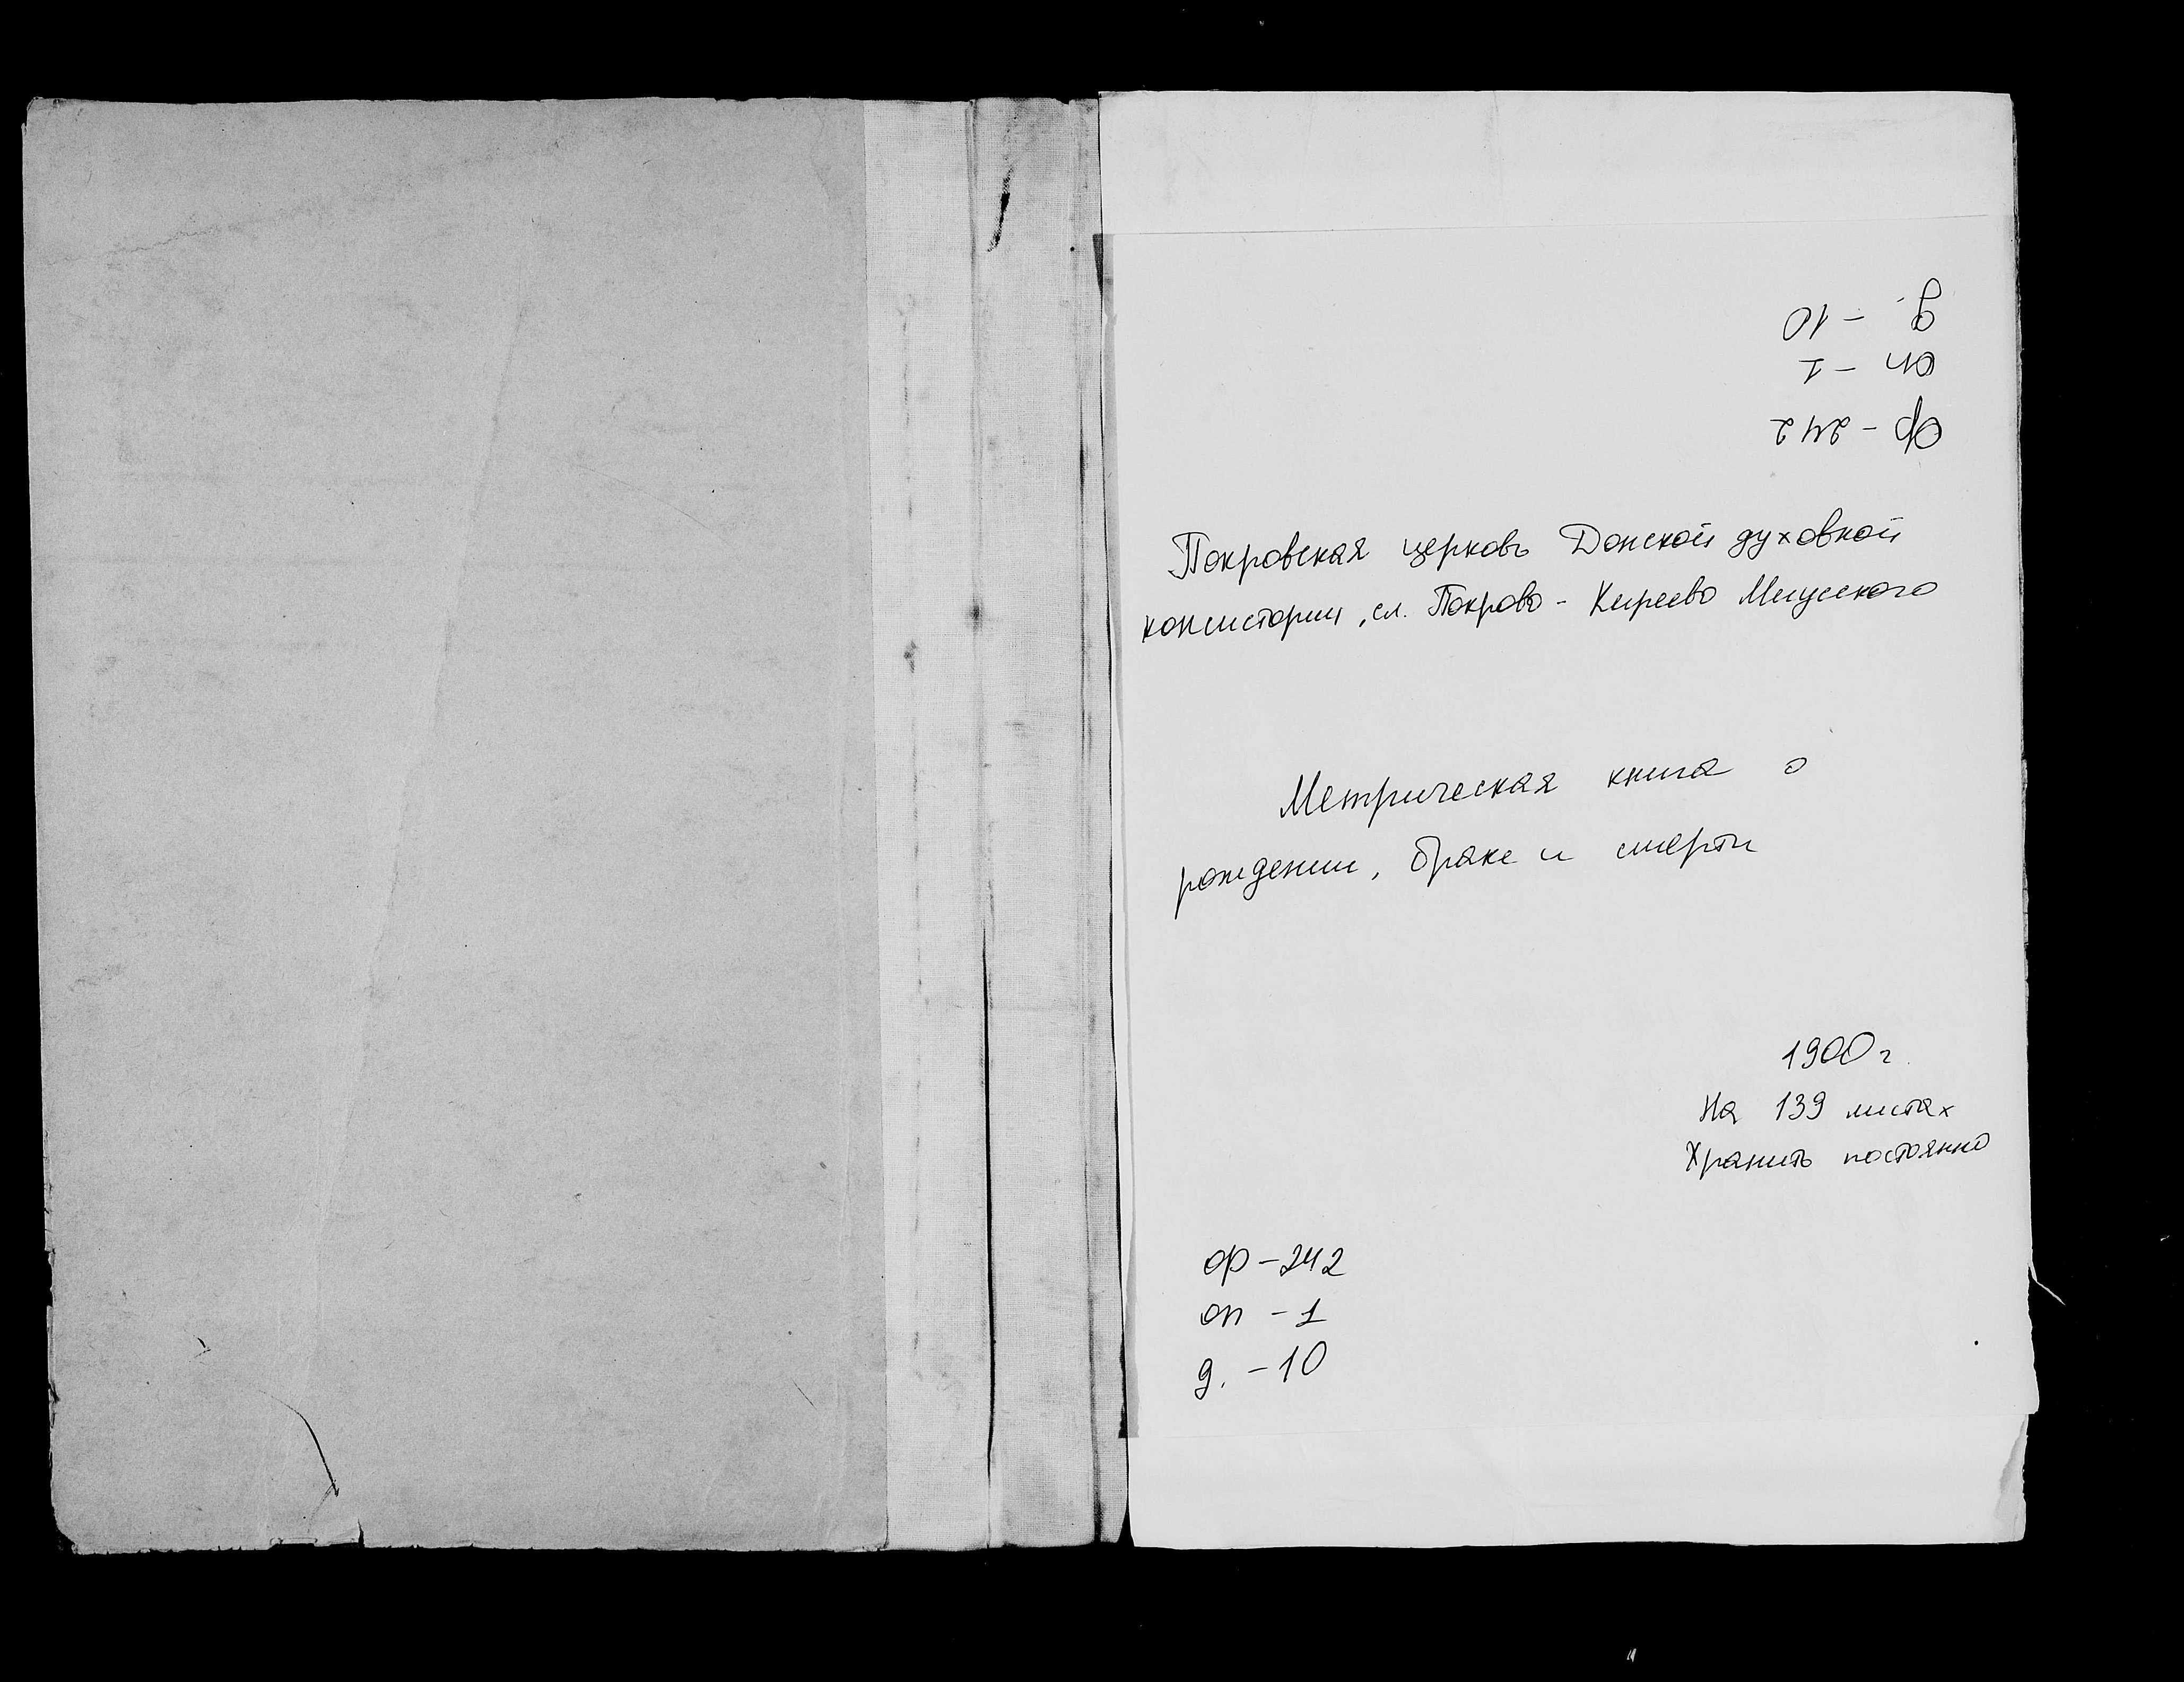 д. - 10
оп - 1
ф - 242
Покровская церковь Донской духовной
консистории, сл. Покрово - Киреево Миусского
Метрическая книга о
рождении, браке и смерти
1900 г.
На 139 листах
Хранить постоянно
ф - 242
оп - 1
д. - 10